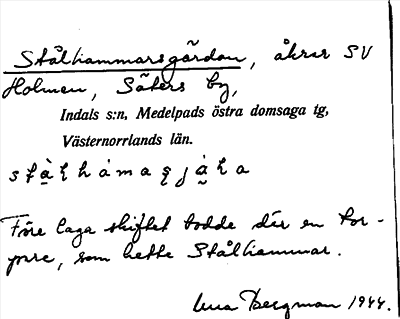 Stålhammarsgårdan, åkrar SV
Holmen, Säters by,
Indals s:n, Medelpads östra domsaga tg,
Västernorrlands län.
Före laga skiftet bodde där en tor-
pare, som hette Stålhammar.
Bergman 1944.